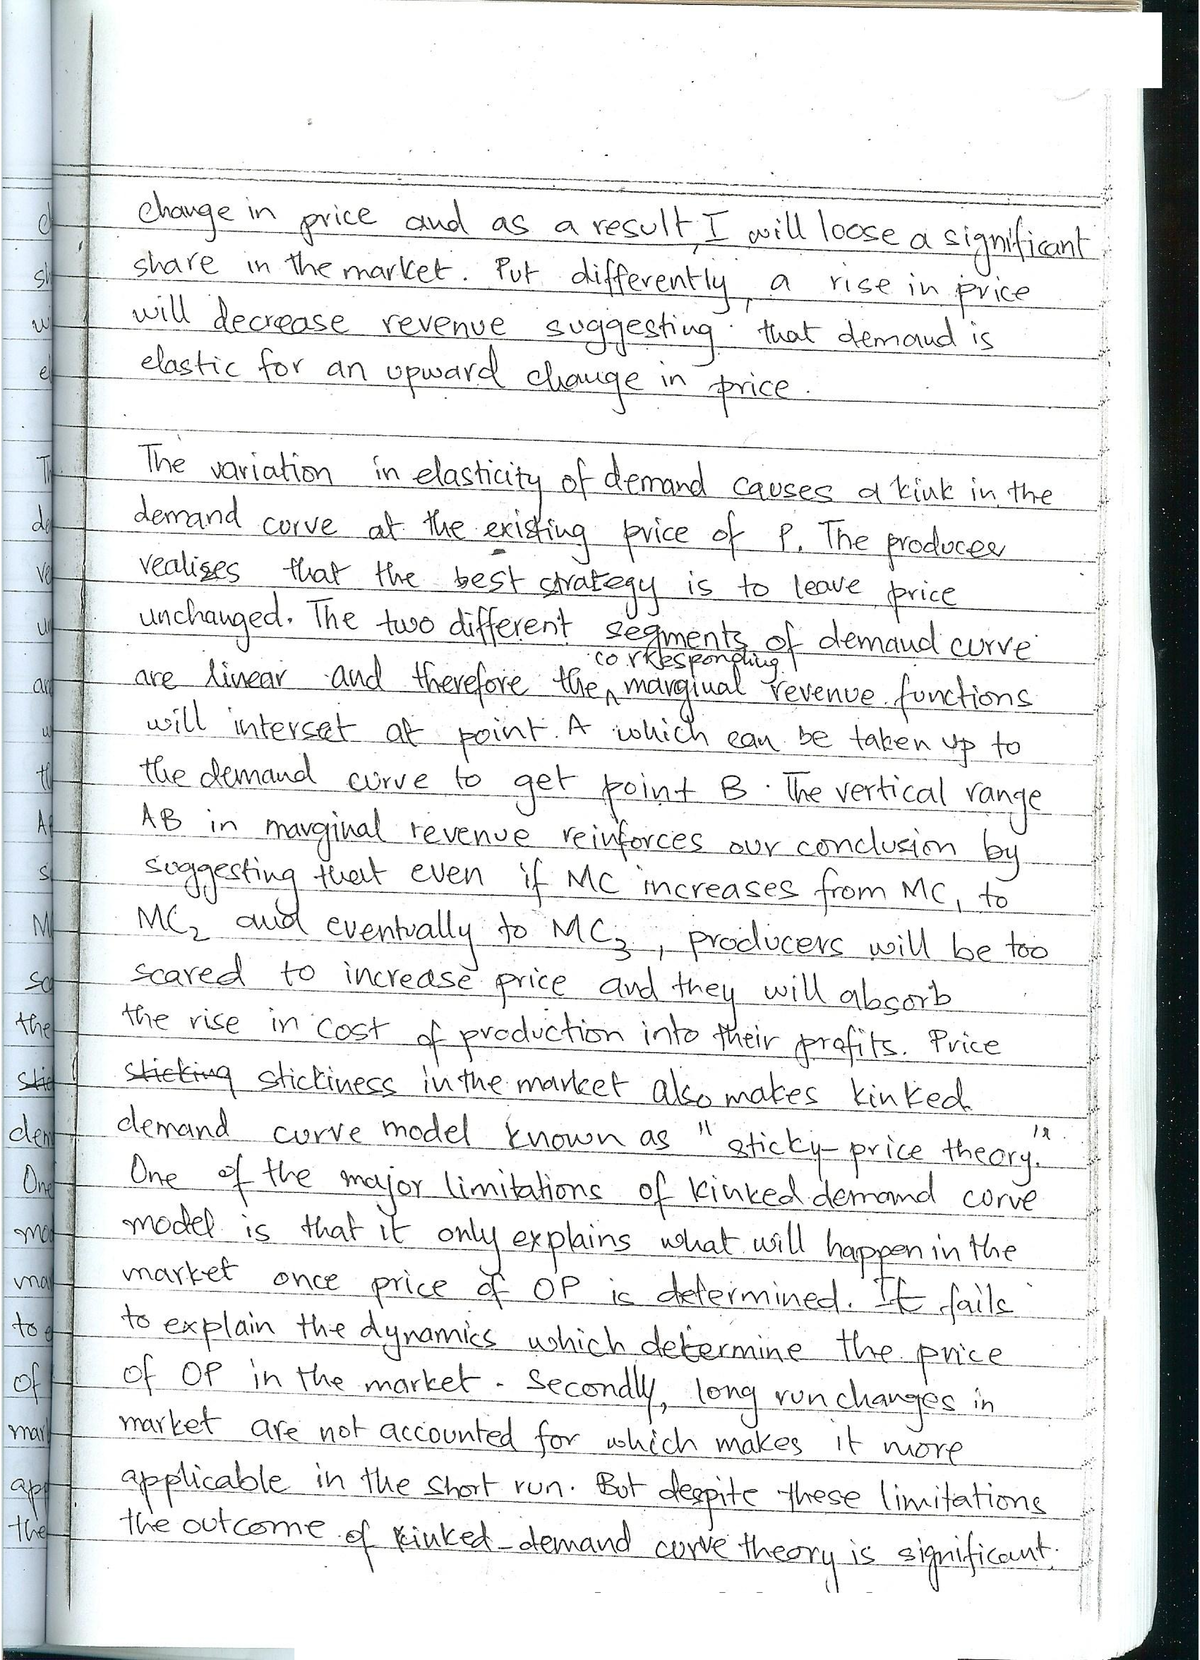 change in price and as a result, I will loose a significant
share in the market. Put differently, a rise in price
will decrease revenue suggesting that demand is
elastic for an upward change in price.
The variation in elasticity of demand causes a kink in the
demand curve at the existing price of P. The producer
realises that the best strategy is to leave price
unchanged. The two different segments of demand curve
corresponding
are linear and therefore the ^ marginal revenue functions
will interset at point A which can be taken up to
the demand curve to get point B. The vertical range
AB in marginal revenue reinforces our conclusion by
suggesting that even if MC increases from MC1 to
MC2 and eventually to MC3, producers will be too
scared to increase price and they will absorb
the rise in cost of production into their profits. Price
sticking stickiness in the market also makes kinked
demand curve model known as "sticky-price theory."
One of the major limitations of kinked demand curve
model is that it only explains what will happen in the
market once price of OP is determined. It fails
to explain the dynamics which determine the price
of OP in the market. Secondly, long run changes in
market are not accounted for which makes it more
applicable in the short run. But despite these limitations
the outcome of kinked-demand curve theory is significant.